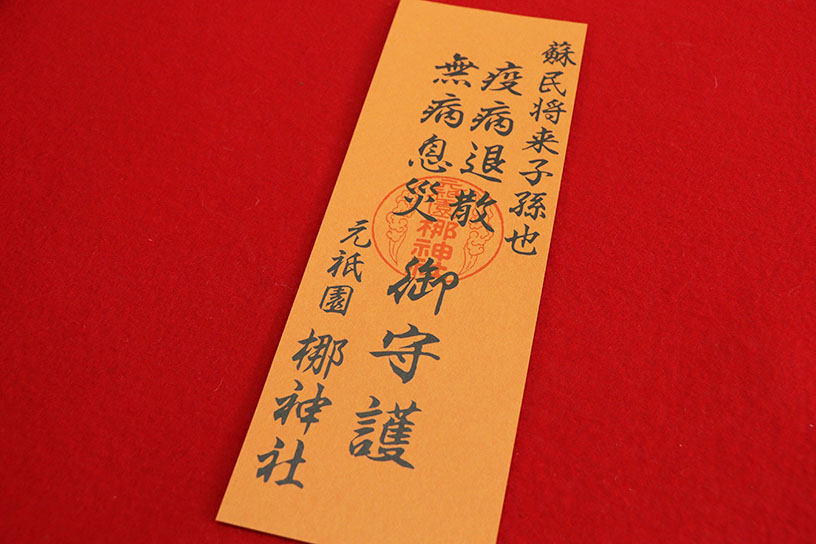 蘇民将来子孫也
疫病退散
無病息災
御守護
元祇園
梛神社
元祇園
梛神社